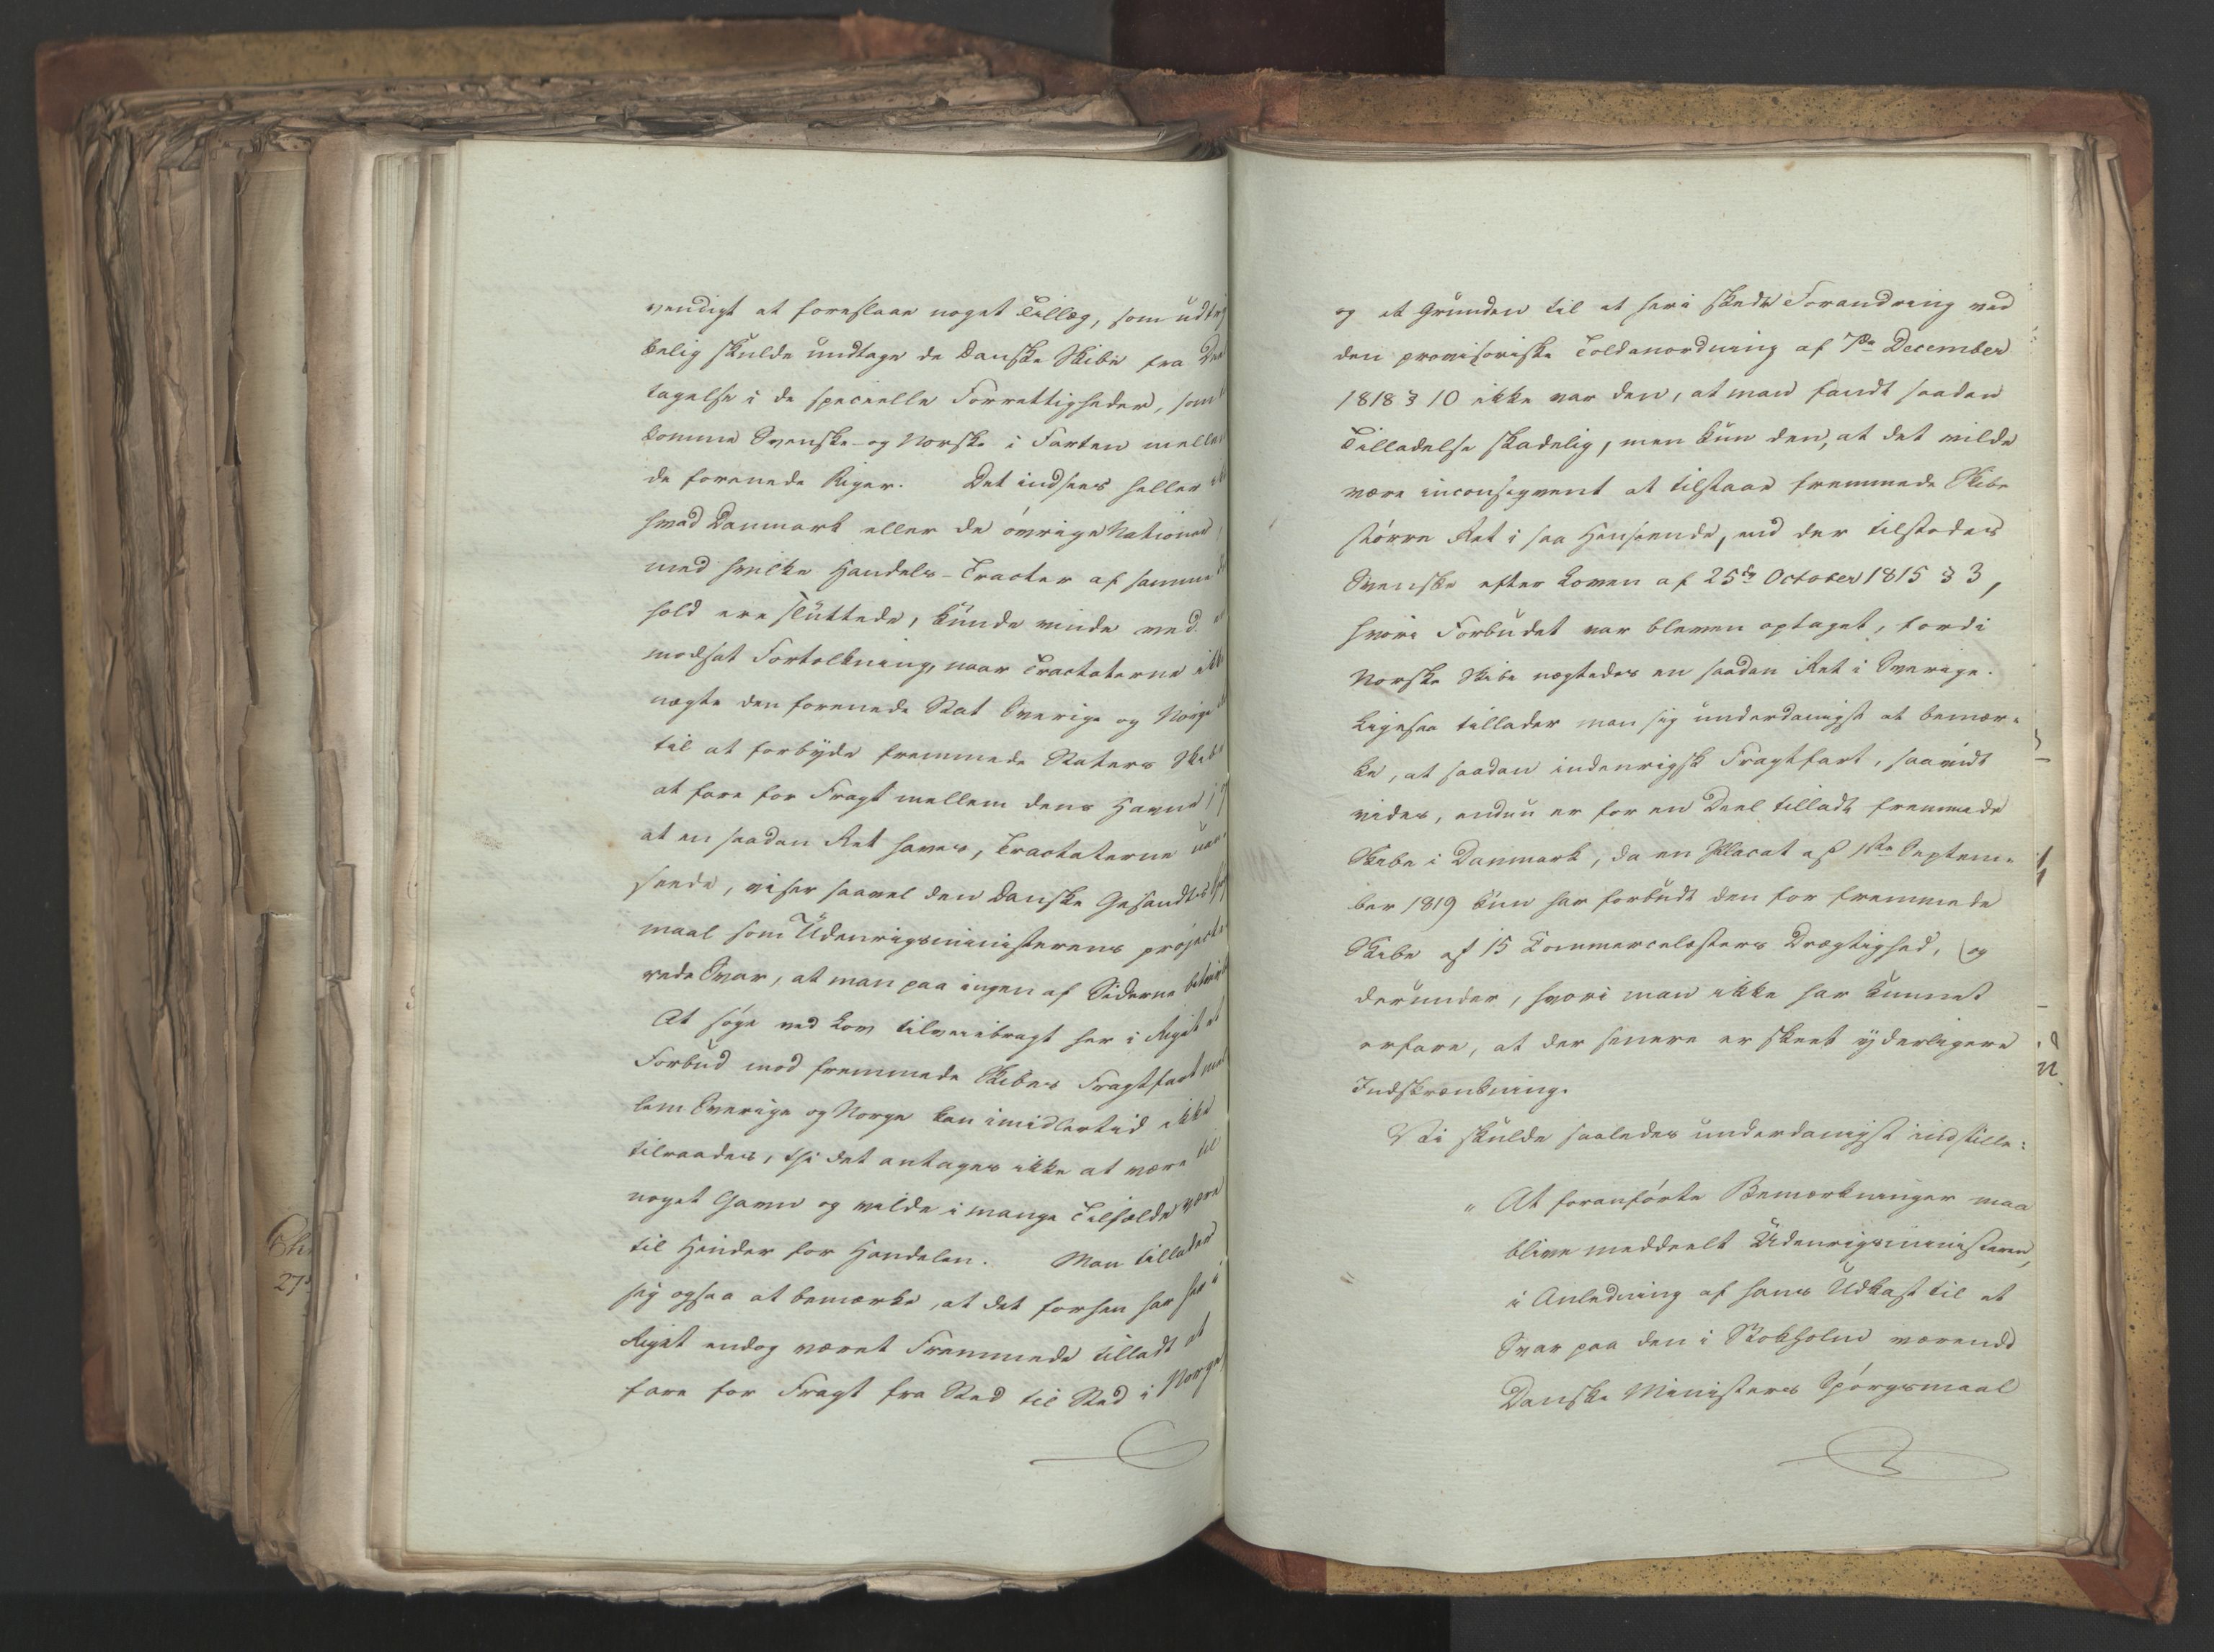 vendigt at foreslaae noget Tillæg, som udtry
kelig skulde undtage de Danske Skibe fra Deel
tagelse i de specielle Forrettigheder, som
komme Svenske og Norske i Farten mellem
de forenede Riger. Det indsees heller ikke
hvad Danmark eller de øvrige Nationer,
med hvilke Handels-Tracter af samme
hold ere sluttede, kunde vinde ved
modsat Fortolkning, naar Tractaterne ikke
nægte den forenede Stat Sverige og Norge
til at forbyde fremmede Staters Skibe
at fare for Fragt mellem dens Havne;
at en saadan Ret haves, Tractaterne uan-
seede, viser saavel den danske Gesandts
maal som Udenrigsministerens projecte
rede Svar, at man paa ingen af Siderne betvivler
At søge ved Lov tilveiebragt her i Riget et
Forbud mod fremmede Skibes Fragtfart mel
lem Sverige og Norge kan imidlertid ikke
tilraades, thi det antages ikke at være til
noget Gavn og vilde i mange Tilfælde være
til Hinder for Handelen. Man tillader
sig ogsaa at bemærke, at det forhen har her i
Riget endog været Fremmede tilladt at
fare for Fragt fra Sted til Sted i Norge,
og at Grunden til at heri skede Forandring ved
den provisoriske Toldanordning af 7de December
1818 § 10 ikke var den, at man fandt saadan
Tilladelse skadelig, men kun den, at det vilde
være inconseqvent at tilstaae fremmede Skibe
større Ret i saa Henseende, end der tilstodes
Svenske efter Loven af 25de October 1815 § 3,
hvori Forbudet var bleven optaget, fordi
Norske Skibe nægtedes en saadan Ret i Sverige.
Ligesaa tillader man sig underdanigst at bemær-
ke, at saadan indenrigsk Fragtfart, saavidt
vides, endnu er for en Deel tilladt fremmede
Skibe i Danmark, da en Placat af 1ste Septem-
ber 1819 kun har forbudt den for fremmede
Skibe af 15 Commercelæsters Drægtighed, og
derunder, hvori man ikke har kunnet
erfare, at der senere er skeet yderligere
Indskrænkning.
Vi skulde saaledes underdanigst indstille:
" At foranførte Bemærkninger maa
blive meddeelt Udenrigsministeren,
i Anledning af hans Udkast til et
Svar paa den i Stokholm værende
Danske Ministers Spørgsmaal